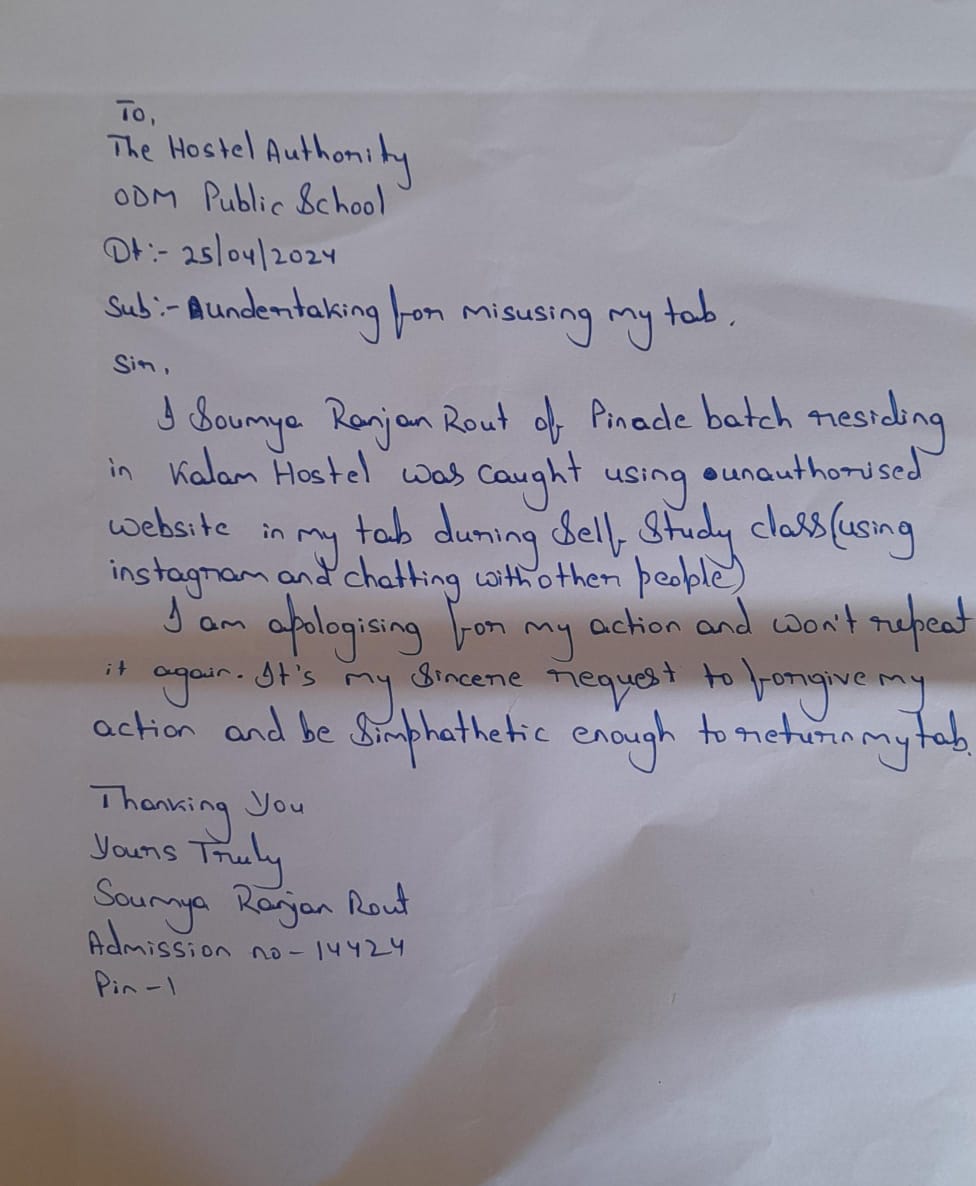 To,
The Hostel Authority
ODM Public School
Dt:- 25/04/2024
Sub:- undertaking for misusing my tab.
Sir,
I Soumya Ranjan Rout of Pinade batch residing
in Kalam Hostel was caught using unauthorised
website in my tab during Self Study class (using
instagram and chatting with other people)
I am apologising for my action and won't repeat
it again. It's my Sincere request to forgive my
action and be Simphathetic enough to return my tab.
Thanking You
Yours Truly
Soumya Ranjan Rout
Admission no - 14424
Pin - 1